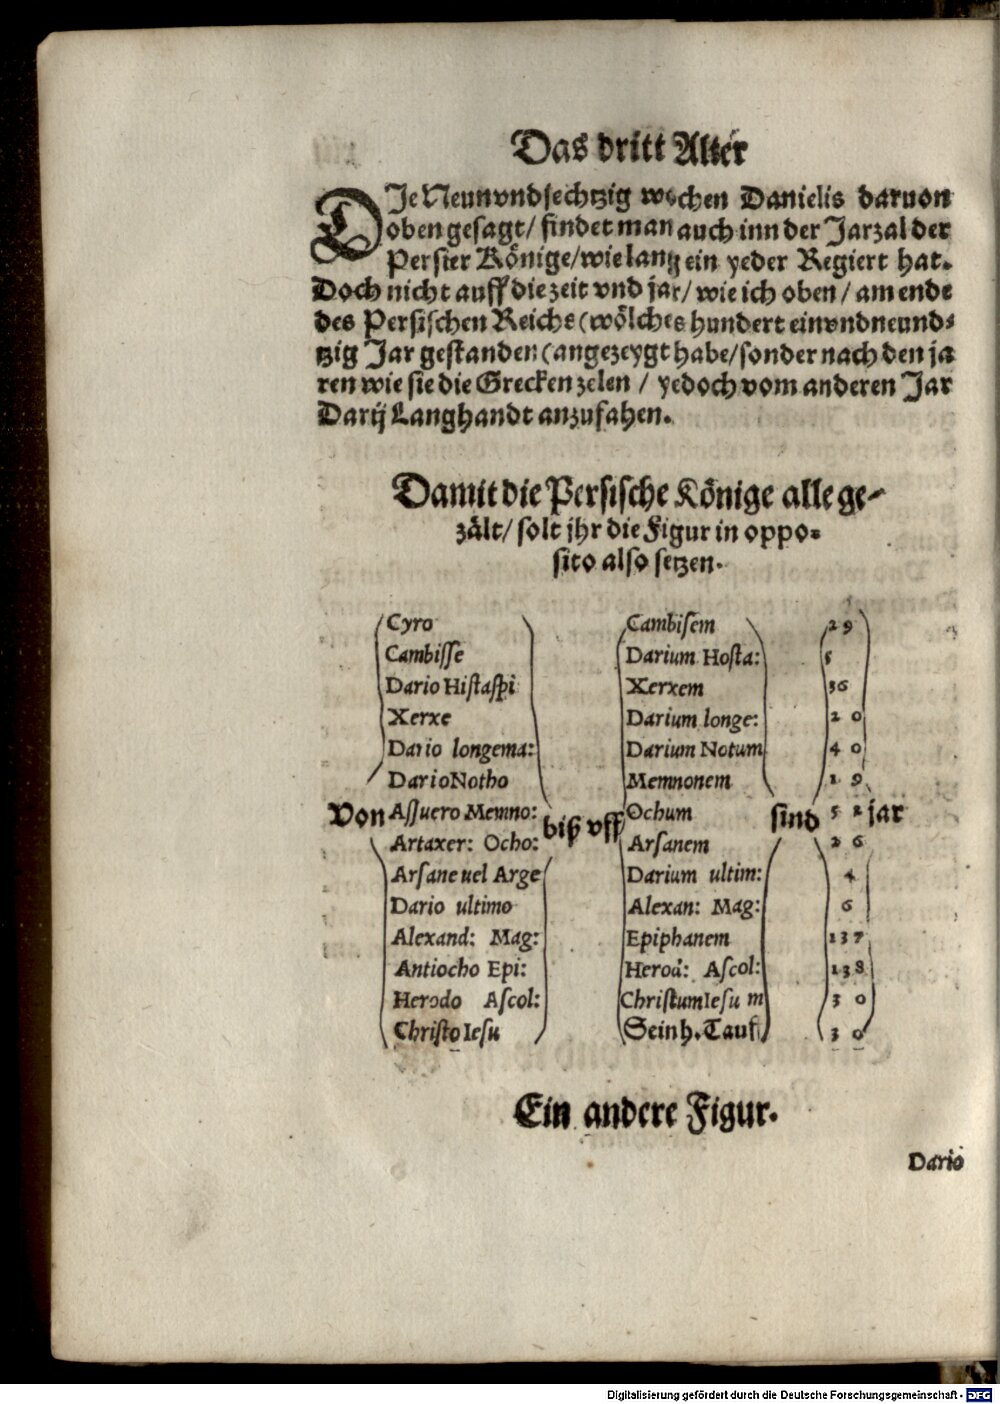 Das dritt Alter
DJe Neunvndsechtzig wochen Danielis daruon
oben gesagt/ findet man auch inn der Jarzal der
Persier Könige/wie lang ein yeder Regiert hat.
Doch nicht auff die zeit vnd jar/ wie ich oben/ am ende
des Persischen Reichs (wölches hundert einvndneund-
tzig Jar gestanden (angezeygt habe/sonder nach den ja
ren wie sie die Grecken zelen / yedoch vom anderen Jar
Darij Langhandt anzufahen.
Damit die Persische Könige alle ge-
zält/ solt jhr die Figur in oppo-
sito also setzen.
Cyro Cambisem 29
Cambisse Darium Hosta: 5
Dario Histaspi Xerxem 36
Xerxe Darium longe: 20
Dario longema: Darium Notum 40
Dario Notho Memnonem 19
Von Assuero Memno: biß vff Ochum sind 52 jar
Artaxer: Ocho: Arsanem 26
Arsane uel Arge Darium ultim: 4
Dario ultimo Alexan: Mag: 6
Alexand: Mag: Epiphanem 137
Antiocho Epi: Herod: Ascol: 138
Herodo Ascol: Christum Iesu m 30
Christo Iesu Sein h. Tauf 30
Ein andere Figur.
Dario
Digitalisierung gefördert durch die Deutsche Forschungsgemeinschaft - DFG